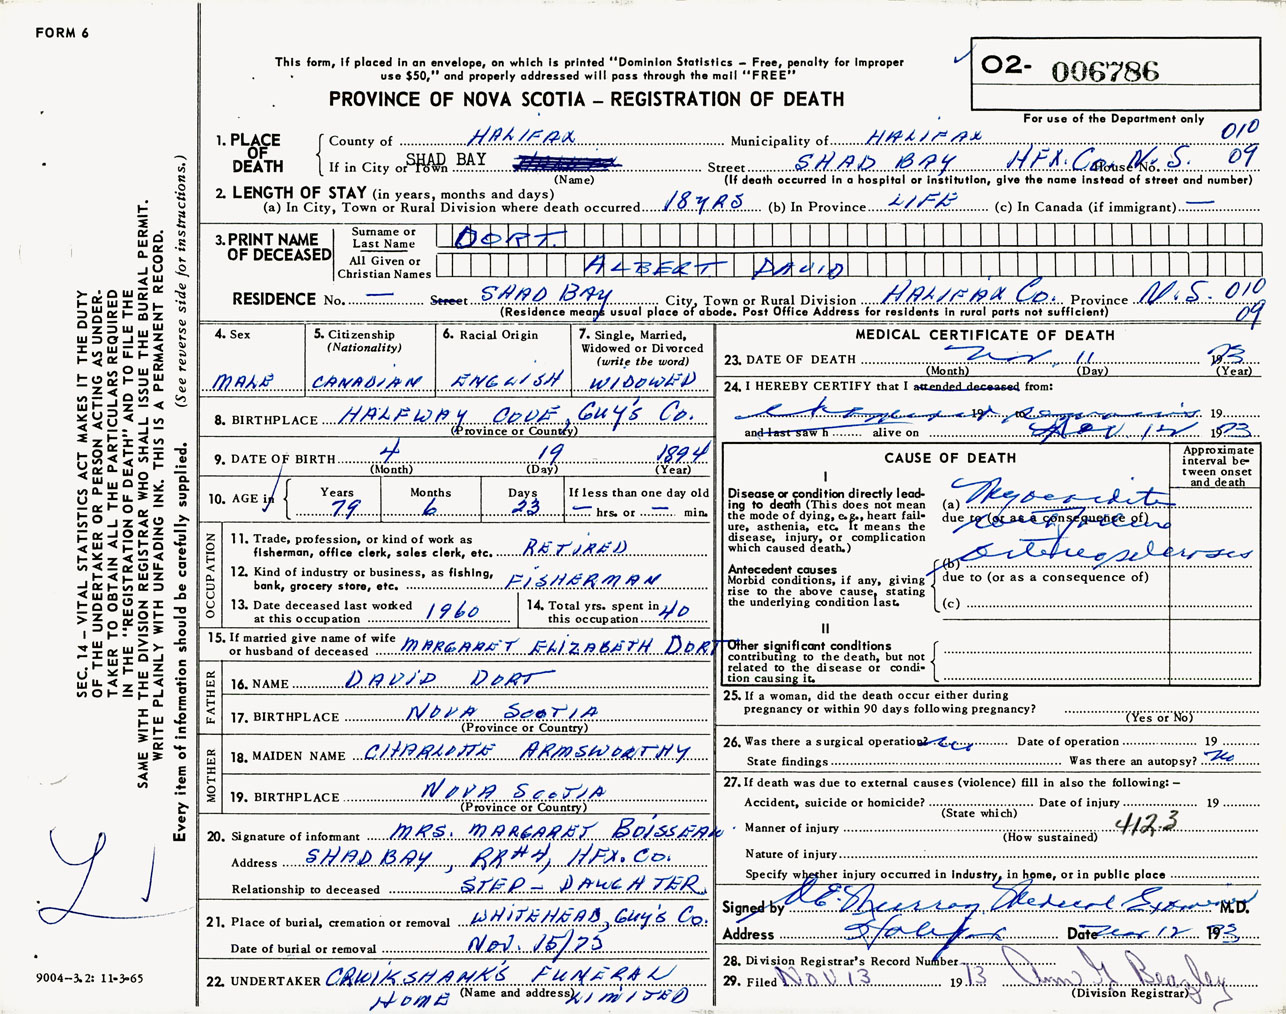 FORM 6
This form, if placed in an envelope, on which is printed "Dominion Statistics – Free, penalty for improper
use $50," and properly addressed will pass through the mail "FREE"
PROVINCE OF NOVA SCOTIA – REGISTRATION OF DEATH
O2- 006786
For use of the Department only
1. PLACE OF DEATH
County of HALIFAX Municipality of HALIFAX 010
If in City or Town SHAD BAY Street SHAD BAY HFX. Co. N.S. House No. 09
(Name) (If death occurred in a hospital or institution, give the name instead of street and number)
2. LENGTH OF STAY (in years, months and days)
(a) In City, Town or Rural Division where death occurred 18 YRS (b) In Province LIFE (c) In Canada (if immigrant) —
3. PRINT NAME OF DECEASED
Surname or Last Name DORT
All Given or Christian Names ALBERT DAVID
RESIDENCE No. — Street SHAD BAY City, Town or Rural Division HALIFAX Co. Province N.S. 010
(Residence means usual place of abode. Post Office Address for residents in rural parts not sufficient) 09
4. Sex
MALE
5. Citizenship
(Nationality)
CANADIAN
6. Racial Origin
ENGLISH
7. Single, Married,
Widowed or Divorced
(write the word)
WIDOWED
8. BIRTHPLACE HALFWAY COVE, GUY'S Co.
(Province or Country)
9. DATE OF BIRTH 4 19 1894
(Month) (Day) (Year)
10. AGE in
Years Months Days If less than one day old
79 6 23 — hrs. or — min.
OCCUPATION
11. Trade, profession, or kind of work as
fisherman, office clerk, sales clerk, etc. RETIRED
12. Kind of industry or business, as fishing,
bank, grocery store, etc. FISHERMAN
13. Date deceased last worked
at this occupation 1960
14. Total yrs. spent in
this occupation 40
15. If married give name of wife
or husband of deceased MARGARET ELIZABETH DORT
FATHER
16. NAME DAVID DORT
17. BIRTHPLACE NOVA SCOTIA
(Province or Country)
MOTHER
18. MAIDEN NAME CHARLOTTE ARMSWORTHY
19. BIRTHPLACE NOVA SCOTIA
(Province or Country)
20. Signature of informant MRS. MARGARET BOISSEAU
Address SHAD BAY, RR#4, HFX. CO.
Relationship to deceased STEP-DAUGHTER
21. Place of burial, cremation or removal WHITEHEAD, GUY'S Co.
Date of burial or removal NOV. 15/73
22. UNDERTAKER CRUIKSHANK'S FUNERAL
HOME (Name and address) LIMITED
MEDICAL CERTIFICATE OF DEATH
23. DATE OF DEATH Nov 11 1973
(Month) (Day) (Year)
24. I HEREBY CERTIFY that I attended deceased from:
19 to 19
and last saw h alive on Nov 12 1973
CAUSE OF DEATH
Approximate
interval be-
tween onset
and death
I
Disease or condition directly lead-
ing to death (This does not mean
the mode of dying, e.g., heart fail-
ure, asthenia, etc. It means the
disease, injury, or complication
which caused death.)
(a) Myocarditis
due to (or as a consequence of)
Antecedent causes
Morbid conditions, if any, giving
rise to the above cause, stating
the underlying condition last.
(b)
due to (or as a consequence of)
(c)
II
Other significant conditions
contributing to the death, but not
related to the disease or condi-
tion causing it.
25. If a woman, did the death occur either during
pregnancy or within 90 days following pregnancy?
(Yes or No)
26. Was there a surgical operation? Date of operation 19
State findings Was there an autopsy? No
27. If death was due to external causes (violence) fill in also the following: –
Accident, suicide or homicide? Date of injury 19
(State which)
Manner of injury 412.3
(How sustained)
Nature of injury
Specify whether injury occurred in industry, in home, or in public place
Signed by Murray Medical Examiner M.D.
Address Halifax Date Nov 12 1973
28. Division Registrar's Record Number
29. Filed NOV 13 1973 Ann G Beazley
(Division Registrar)
SEC. 14 – VITAL STATISTICS ACT MAKES IT THE DUTY
OF THE UNDERTAKER OR PERSON ACTING AS UNDER-
TAKER TO OBTAIN ALL THE PARTICULARS REQUIRED
IN THE "REGISTRATION OF DEATH" AND TO FILE THE
SAME WITH THE DIVISION REGISTRAR WHO SHALL ISSUE THE BURIAL PERMIT.
WRITE PLAINLY WITH UNFADING INK. THIS IS A PERMANENT RECORD.
Every item of information should be carefully supplied. (See reverse side for instructions.)
9004-3.2: 11-3-65